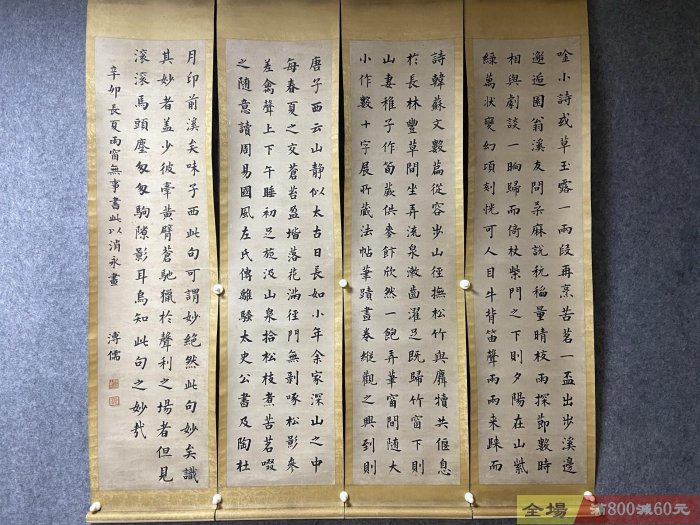 唐子西云山靜似太古日長如小年余家深山之中
每春夏之交蒼苔盈堦落花滿徑門無剝啄松影參
差禽聲上下午睡初足旋汲山泉拾松枝煮苦茗啜
之隨意讀周易國風左氏傳離騷太史公書及陶杜
詩韓蘇文數篇從容步山徑撫松竹與麛犢共偃息
於長林豐草間坐弄流泉漱齒濯足既歸竹窗下則
山妻稚子作筍蕨供麥飰欣然一飽弄筆窗間隨大
小作數十字展所藏法帖筆蹟畫卷縱觀之興到則
唫小詩或草玉露一兩段再烹苦茗一盃出步溪邊
邂逅園翁溪友問桑麻說秔稻量晴校雨探節數時
相與劇談一晌歸而倚杖柴門之下則夕陽在山紫
綠萬狀變幻頃刻恍可人目牛背笛聲兩兩来歸而
月印前溪矣味子西此句可謂妙絕然此句妙矣識
其妙者蓋少彼牽黃臂蒼馳獵於聲利之場者但見
滾滾馬頭塵匆匆駒隙影耳烏知此句之妙哉
辛卯長夏雨窗無事書此以消永晝
溥儒
全場
滿800減60元